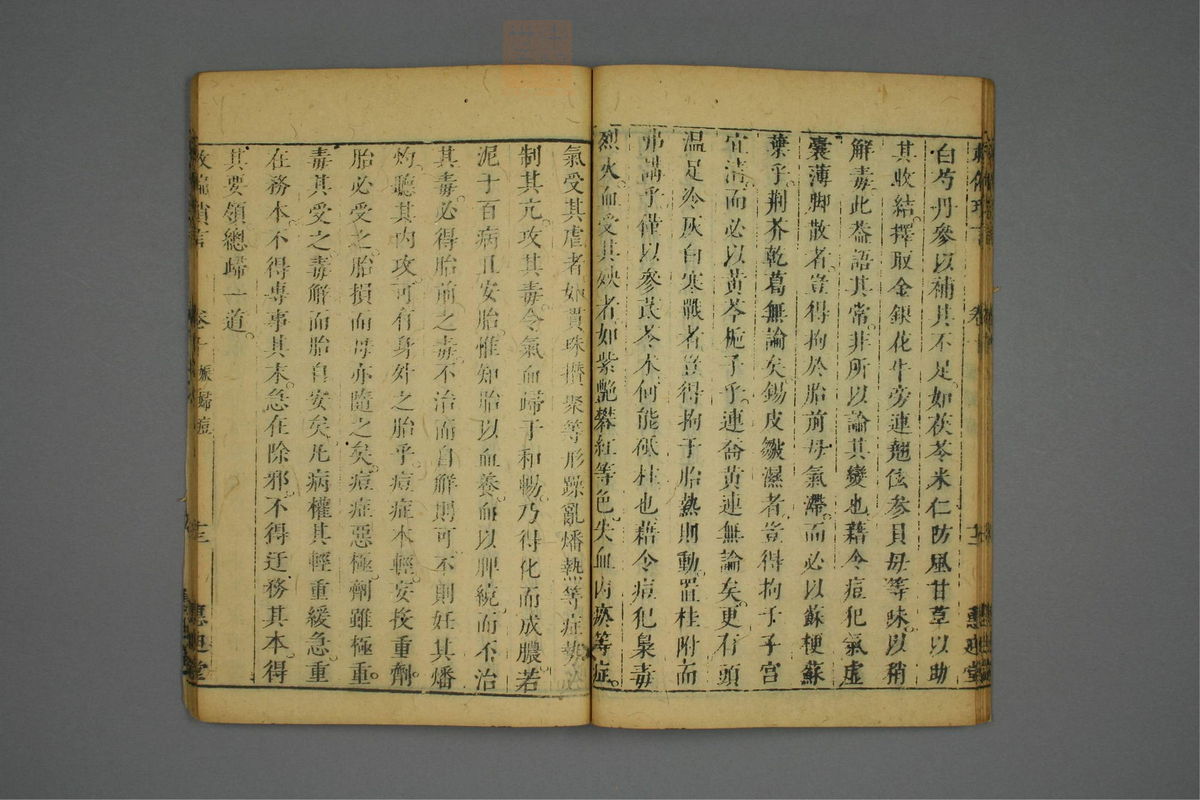 白芍丹參以補其不足如茯苓米仁防風甘草以助
其收結擇取金銀花牛旁連翹伭參貝母等味以稍
解毒此葢語其常非所以論其變也藉令痘犯氣虛
囊薄脚散者豈得拘於胎前母氣滯而必以蘇梗蘇
葉乎荆芥乾葛無論矣錫皮皺濕者豈得拘于子宮
宜清而必以黃芩梔子乎連翹黃連無論矣更有頭
温足冷灰白寒戰者豈得拘于胎熱則動置桂附而
弗講乎僅以參芪苓术何能砥柱也藉令痘犯梟毒
烈火血受其殃者如紫艷礬紅等色失血内瘀等症
氣受其虐者如貫珠攅聚等形躁亂燔熱等症势必
制其亢攻其毒令氣血歸于和暢乃得化而成膿若
泥于百病且安胎惟知胎以血養血以脾統而不治
其毒必得胎前之毒不治而自解則可不則妊其燔
灼聽其内攻可有身外之胎乎痘症本輕妄投重劑
胎必受之胎損而母亦隨之矣痘症惡極劑雖極重
毒其受之毒解而胎自安矣凡病權其輕重緩急重
在務本不得專事其末急在除邪不得迂務其本得
其要領總歸一道
救偏瑣言
卷十 娠婦痘
十二
惠迪堂